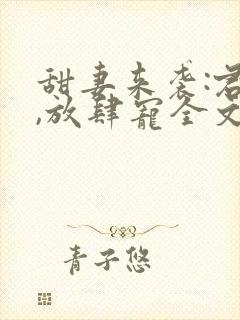 甜妻来袭:君
,放肆宠全文
青子悠